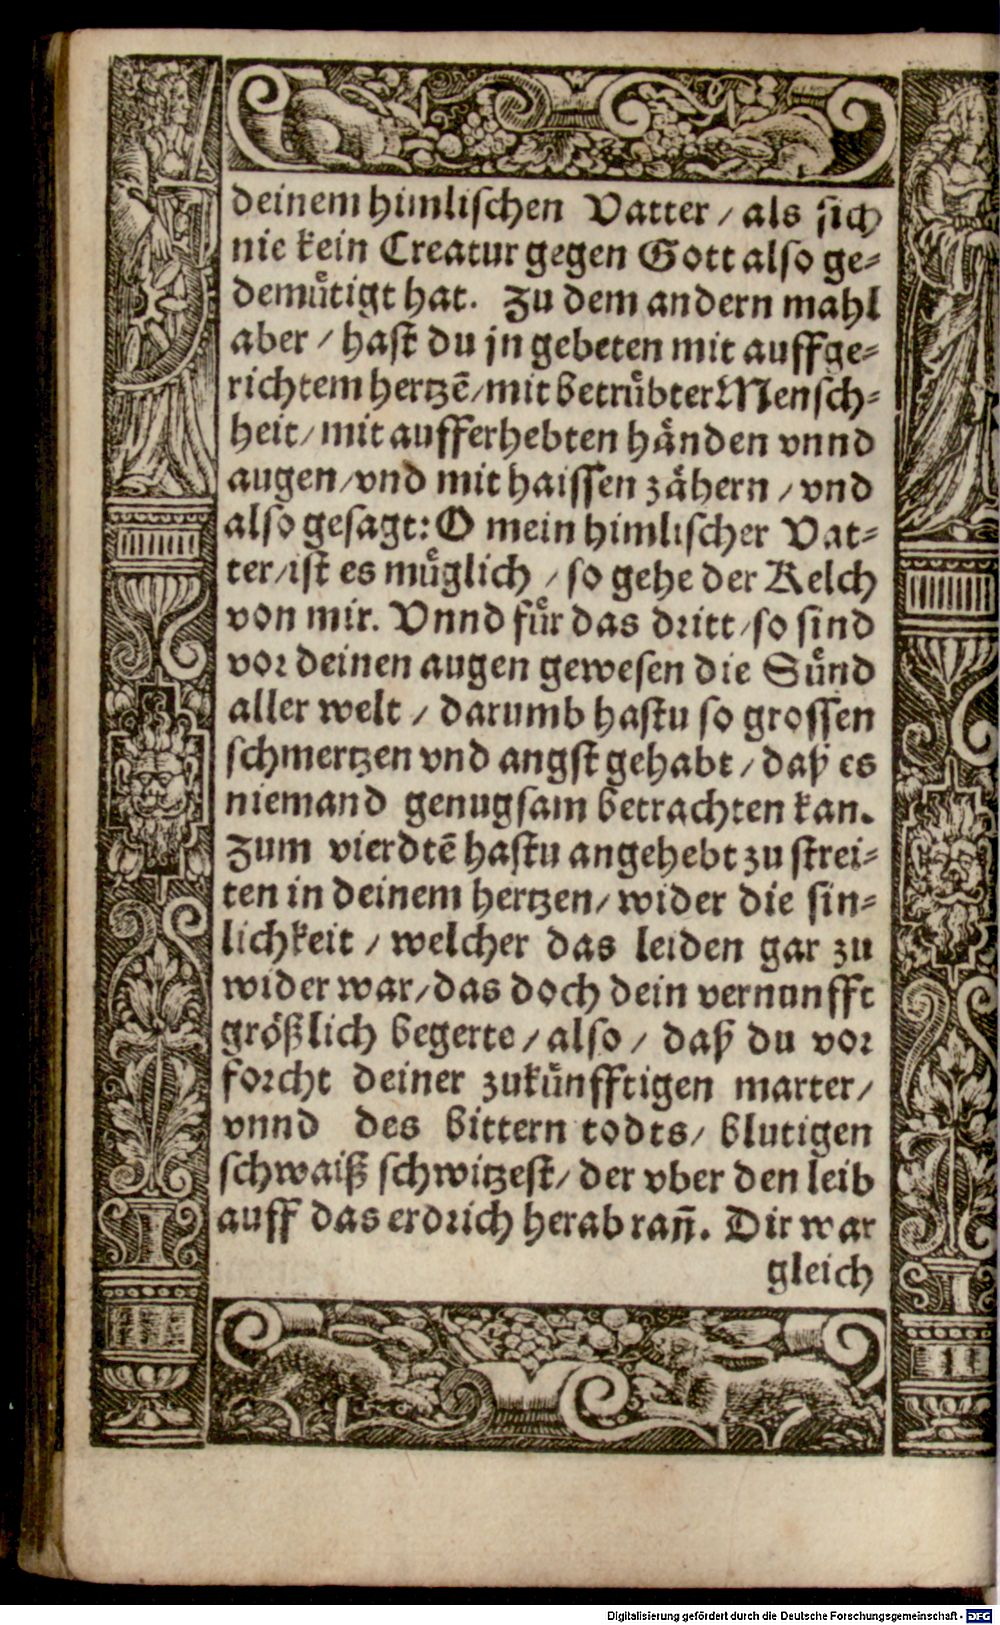 deinem himlischen Vatter / als sich
nie kein Creatur gegen Gott also ge⸗
demuͤtigt hat. Zu dem andern mahl
aber / hast du jn gebeten mit auffge⸗
richtem hertzē / mit betruͤbter Mensch⸗
heit / mit aufferhebten haͤnden vnnd
augen / vnd mit haissen zaͤhern / vnd
also gesagt: O mein himlischer Vat⸗
ter / ist es muͤglich / so gehe der Kelch
von mir. Vnnd fuͤr das dritt / so sind
vor deinen augen gewesen die Suͤnd
aller welt / darumb hastu so grossen
schmertzen vnd angst gehabt / daß es
niemand genugsam betrachten kan.
Zum vierdtē hastu angehebt zu strei⸗
ten in deinem hertzen / wider die sin⸗
lichkeit / welcher das leiden gar zu
wider war / das doch dein vernunfft
groͤßlich begerte / also / daß du vor
forcht deiner zukuͤnfftigen marter /
vnnd des bittern todts / blutigen
schwaiß schwitzest / der vber den leib
auff das erdrich herab rañ. Dir war
gleich
Digitalisierung gefördert durch die Deutsche Forschungsgemeinschaft - DFG